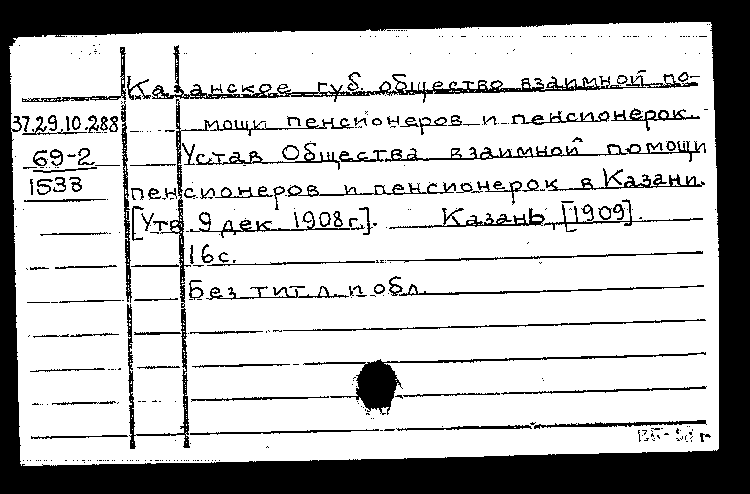 Казанское губ. общество взаимной по-
37.29.10.288 мощи пенсионеров и пенсионерок.
69-2 Устав Общества взаимной помощи
1538 пенсионеров и пенсионерок в Казани.
[Утв. 9 дек. 1908 г.]. Казань, [1909].
16 с.
Без тит. л. и обл.